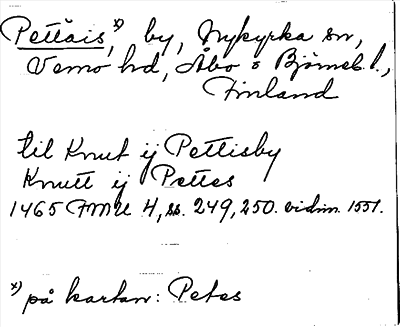 Pettäis, x) by, Nykyrka sn,
Vemo hd, Åbo o Björneb. l.,
Finland
til Knut ij Pettisby
Knutt ij Pettes
1465 FMU 4, ss. 249, 250. vidim. 1551.
x) på kartan: Petes